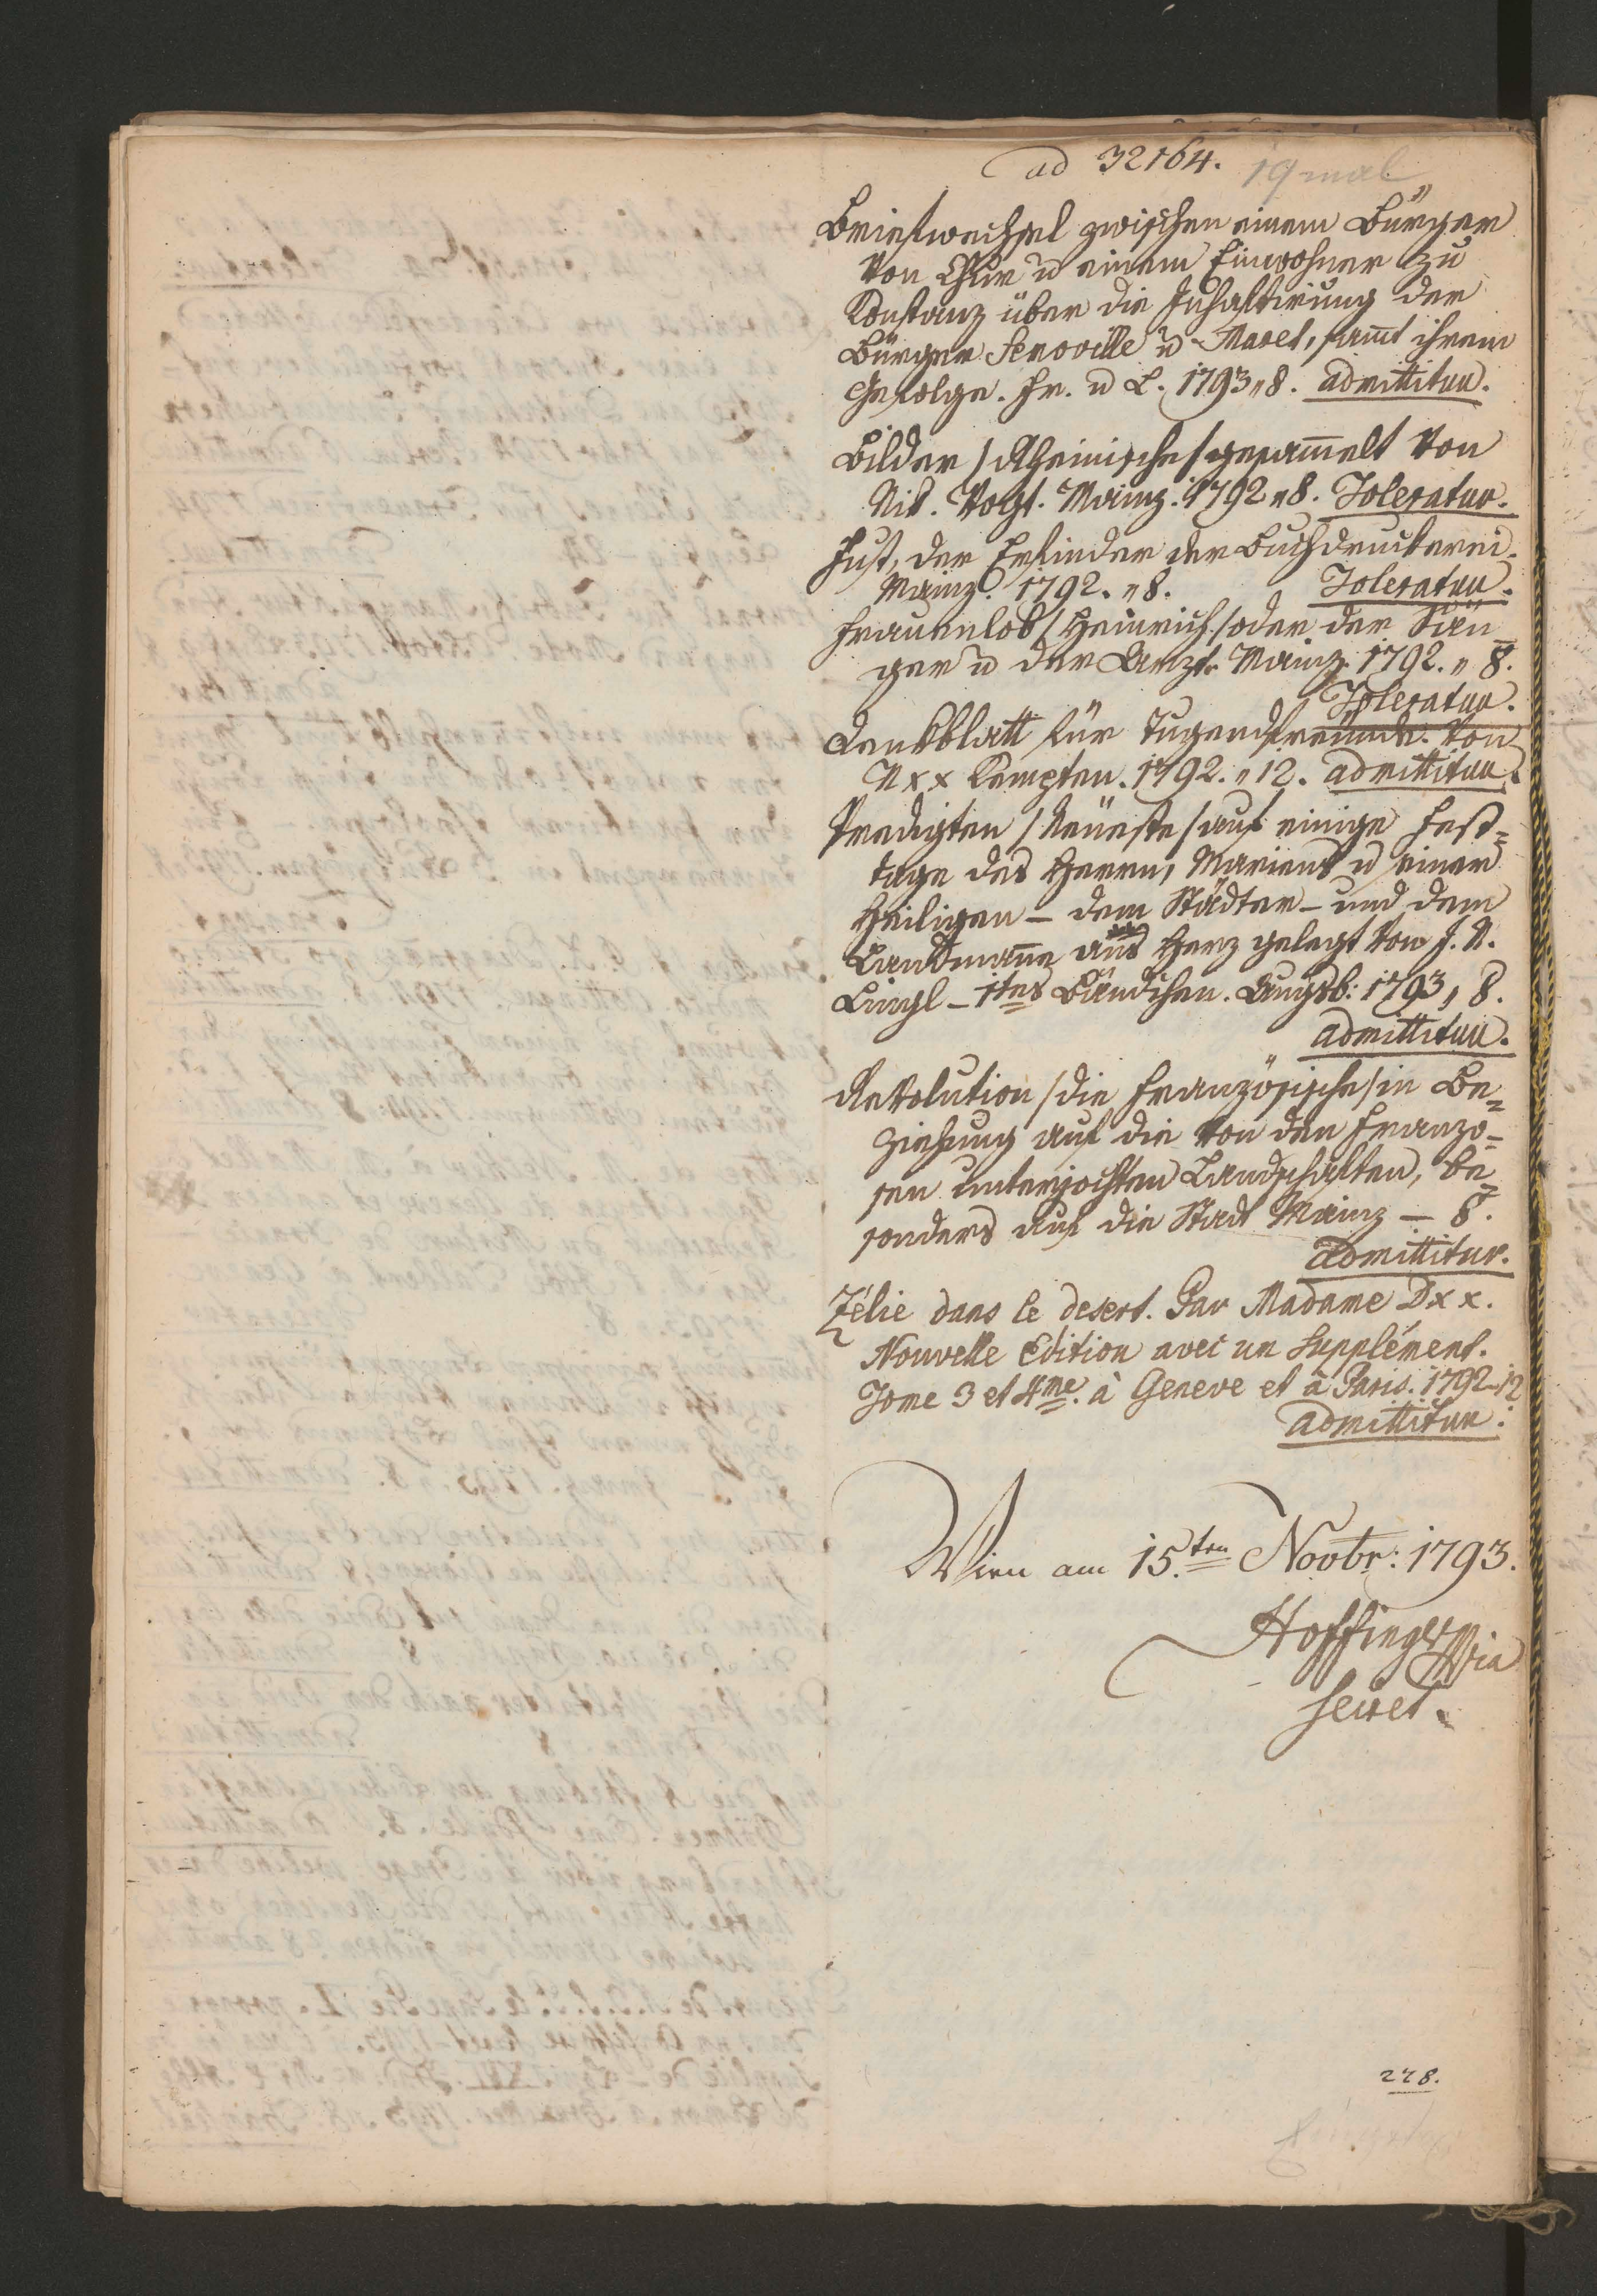 ad 32164. 19 mal
Briefwechsel zwischen einem Bürger
von Chur u einem Einwohner zu
Konstanz über die Inhaftirung der
Bürger Semoville u Maret, samt ihrem
Gefolge. Fr. u L. 1793 „ 8. admittitur.
Bilder / Rheinische / gesam̄elt von
Nik. Vogt. Mainz. 1792 „ 8. Toleratur.
Fust, der Erfinder der Buchdruckerei.
Mainz. 1792. „ 8. Toleratur.
Frauenlob / Heinrich / oder der Sän
ger u der Arzt. Mainz. 1792. „ 8.
Toleratur.
Denkblatt für Tugendfreunde. Von
N x x Kempten. 1792. „ 12. admittitur.
Predigten / Neueste / auf einige Fest=
tage des Herrn, Mariens u einer
Heiligen – dem Städter – und dem
Landmann ans Herz gelegt von J. N.
Lingl – 1tes Bändchen. Augsb: 1793, 8.
admittitur.
Revolution / die französische / in Be=
ziehung auf die von den Franzo=
sen unterjochten Landschaften, be=
sonders auf die Stadt Mainz – 8.
admittitur.
Zélie dans le desert. Par Madame D x x.
Nouvelle Edition avec un Supplément.
Tome 3 et 4me. à Geneve et à Paris. 1792–12
admittitur.
Wien am 15.ten Novbr: 1793.
Hoffinger
Secret.
278.